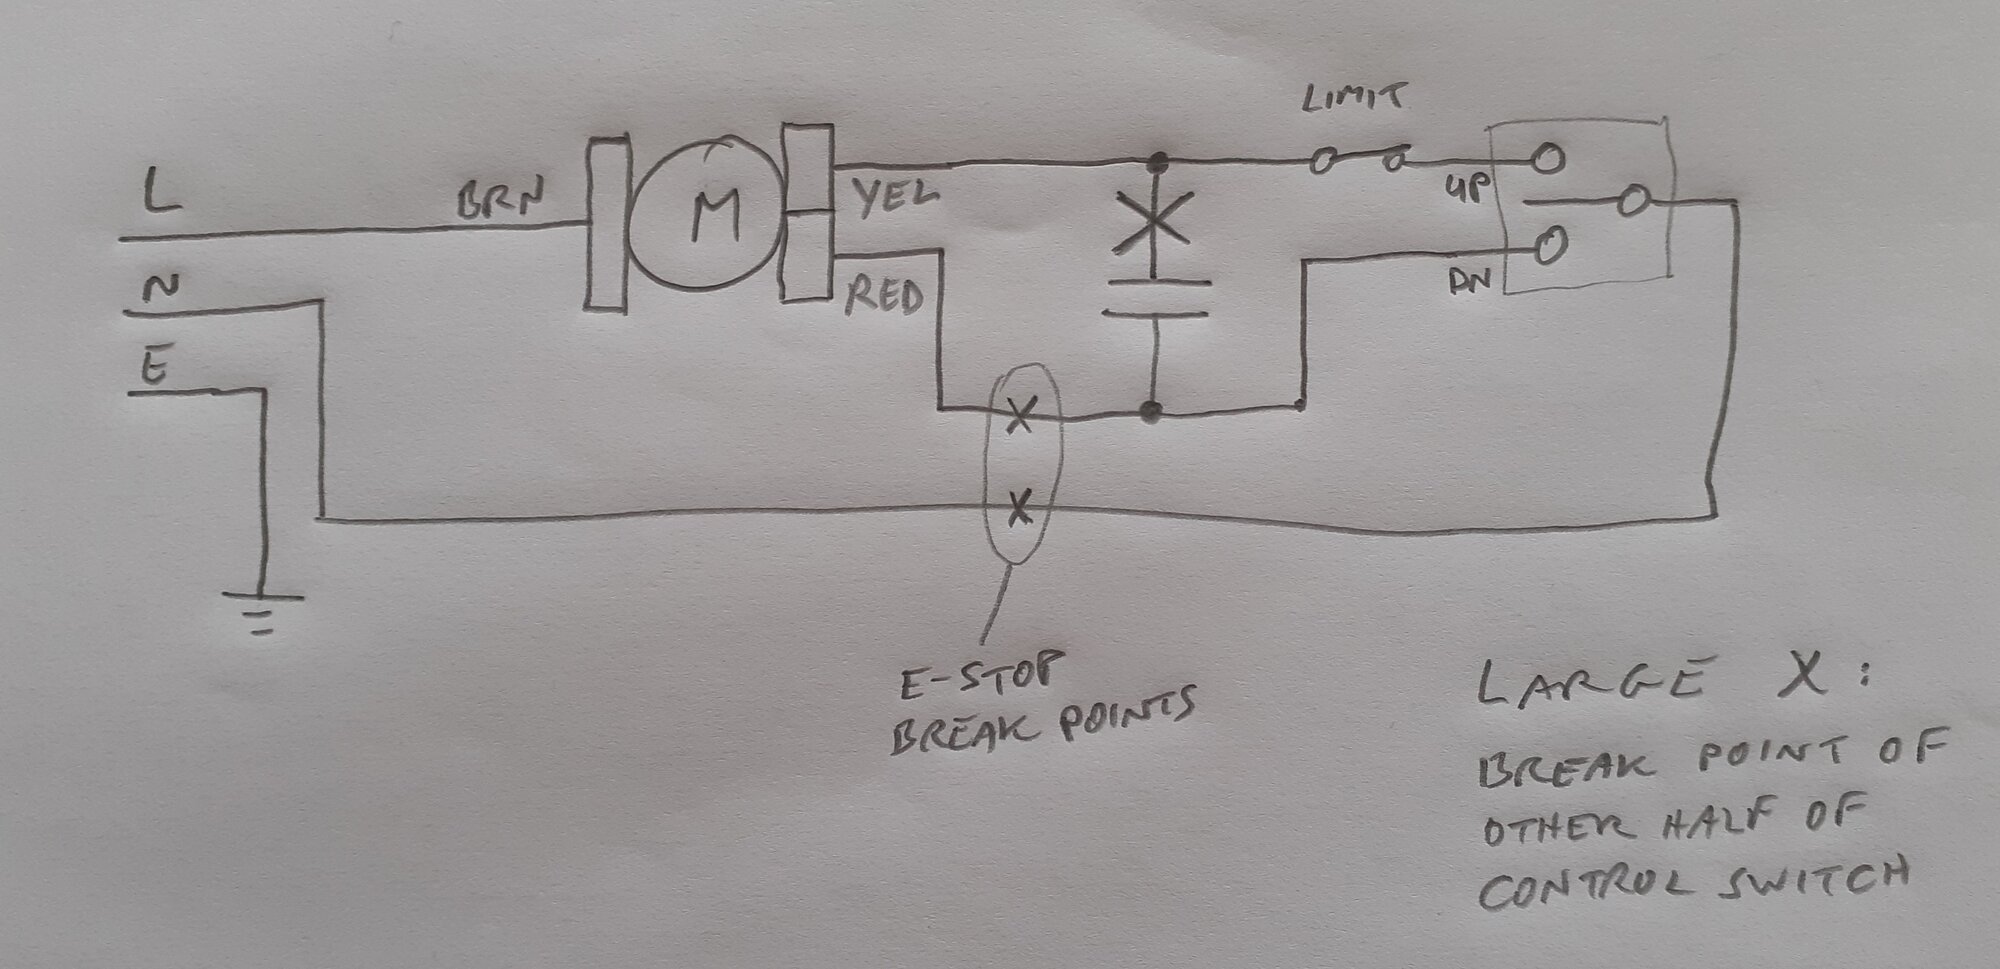 LIMIT
L
BRN
M
YEL
UP
N
RED
DN
E
E-STOP
BREAK POINTS
LARGE X:
BREAK POINT OF
OTHER HALF OF
CONTROL SWITCH